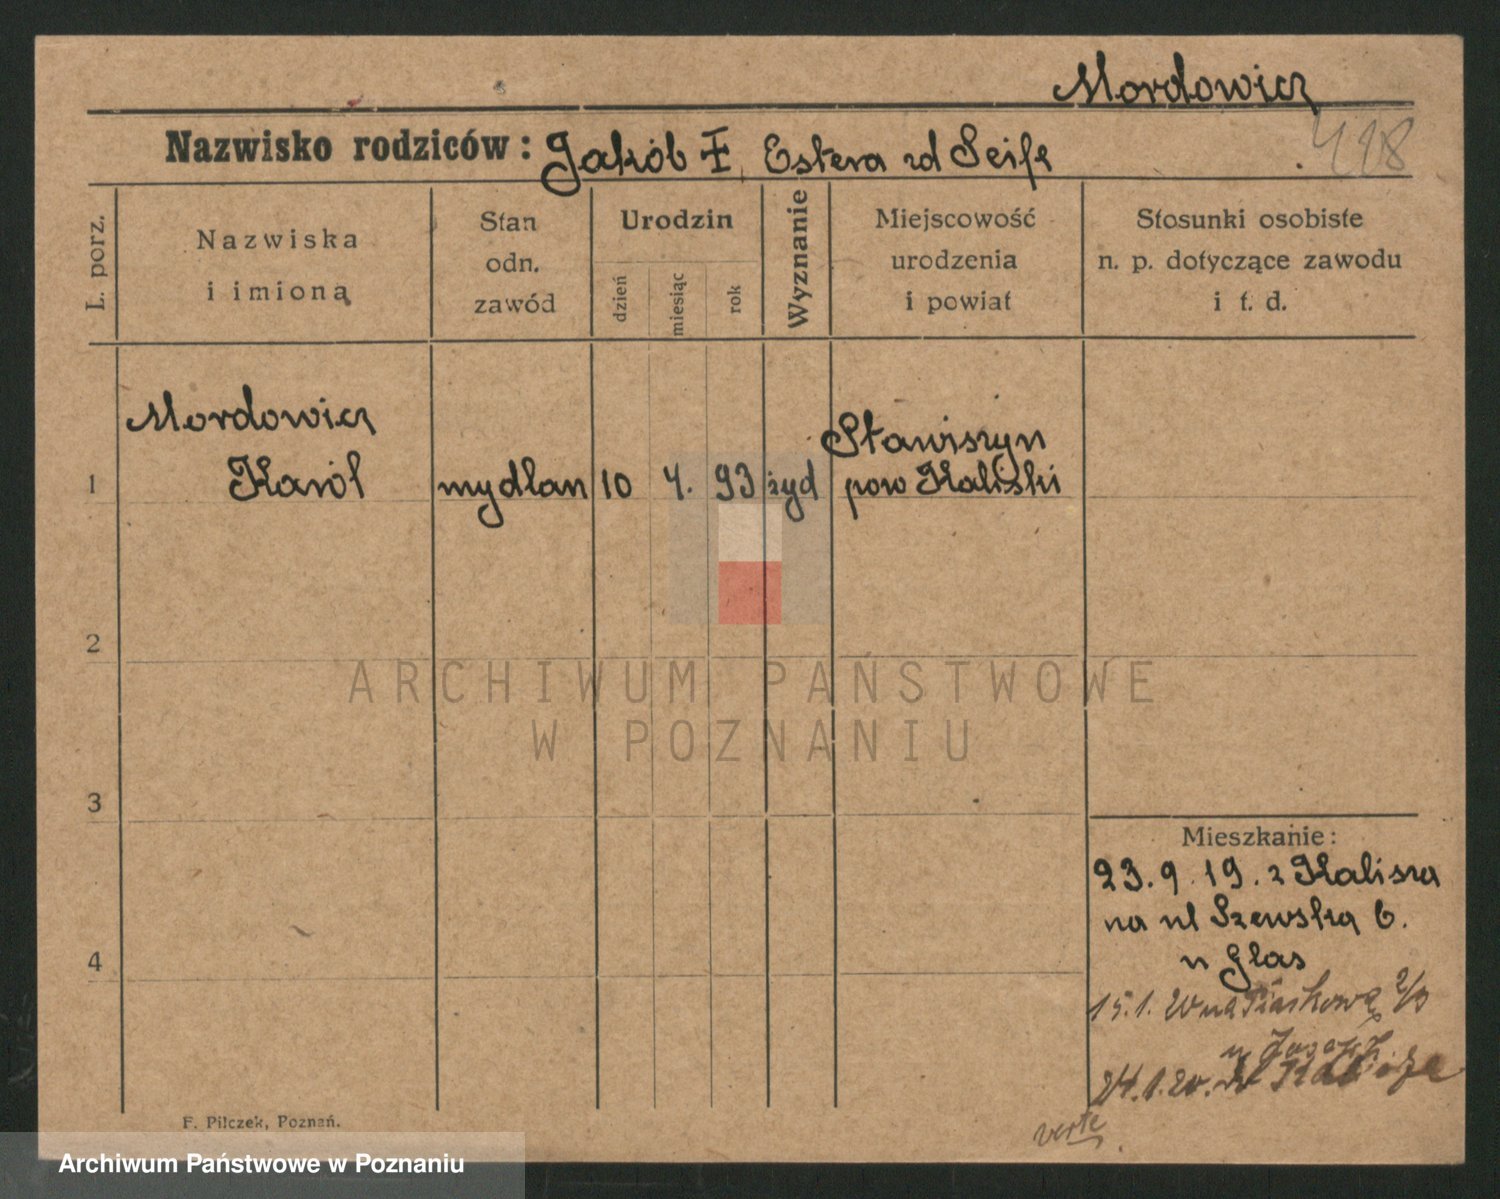 Mordowicz
Nazwisko rodziców: Jakób Ŧ, Estera zd Seife
428
L. porz.
Nazwiska
i imioną
Stan
odn.
zawód
Urodzin
dzień
miesiąc
rok
Wyznanie
Miejscowość
urodzenia
i powiat
Stosunki osobiste
n. p. dotyczące zawodu
i t. d.
1
Mordowicz
Karól
mydlarz
10
4.
93
żyd
Stawiszyn
pow Kaliski
2
ARCHIWUM PAŃSTWOWE
W POZNANIU
3
4
Mieszkanie:
23.9.19. z Kalisza
na ul Szewska 6.
u Glas
15.1.20 na Piaskową 2/3
u
24.1.20. do Kalisza
verte
F. Pilczek, Poznań.
Archiwum Państwowe w Poznaniu